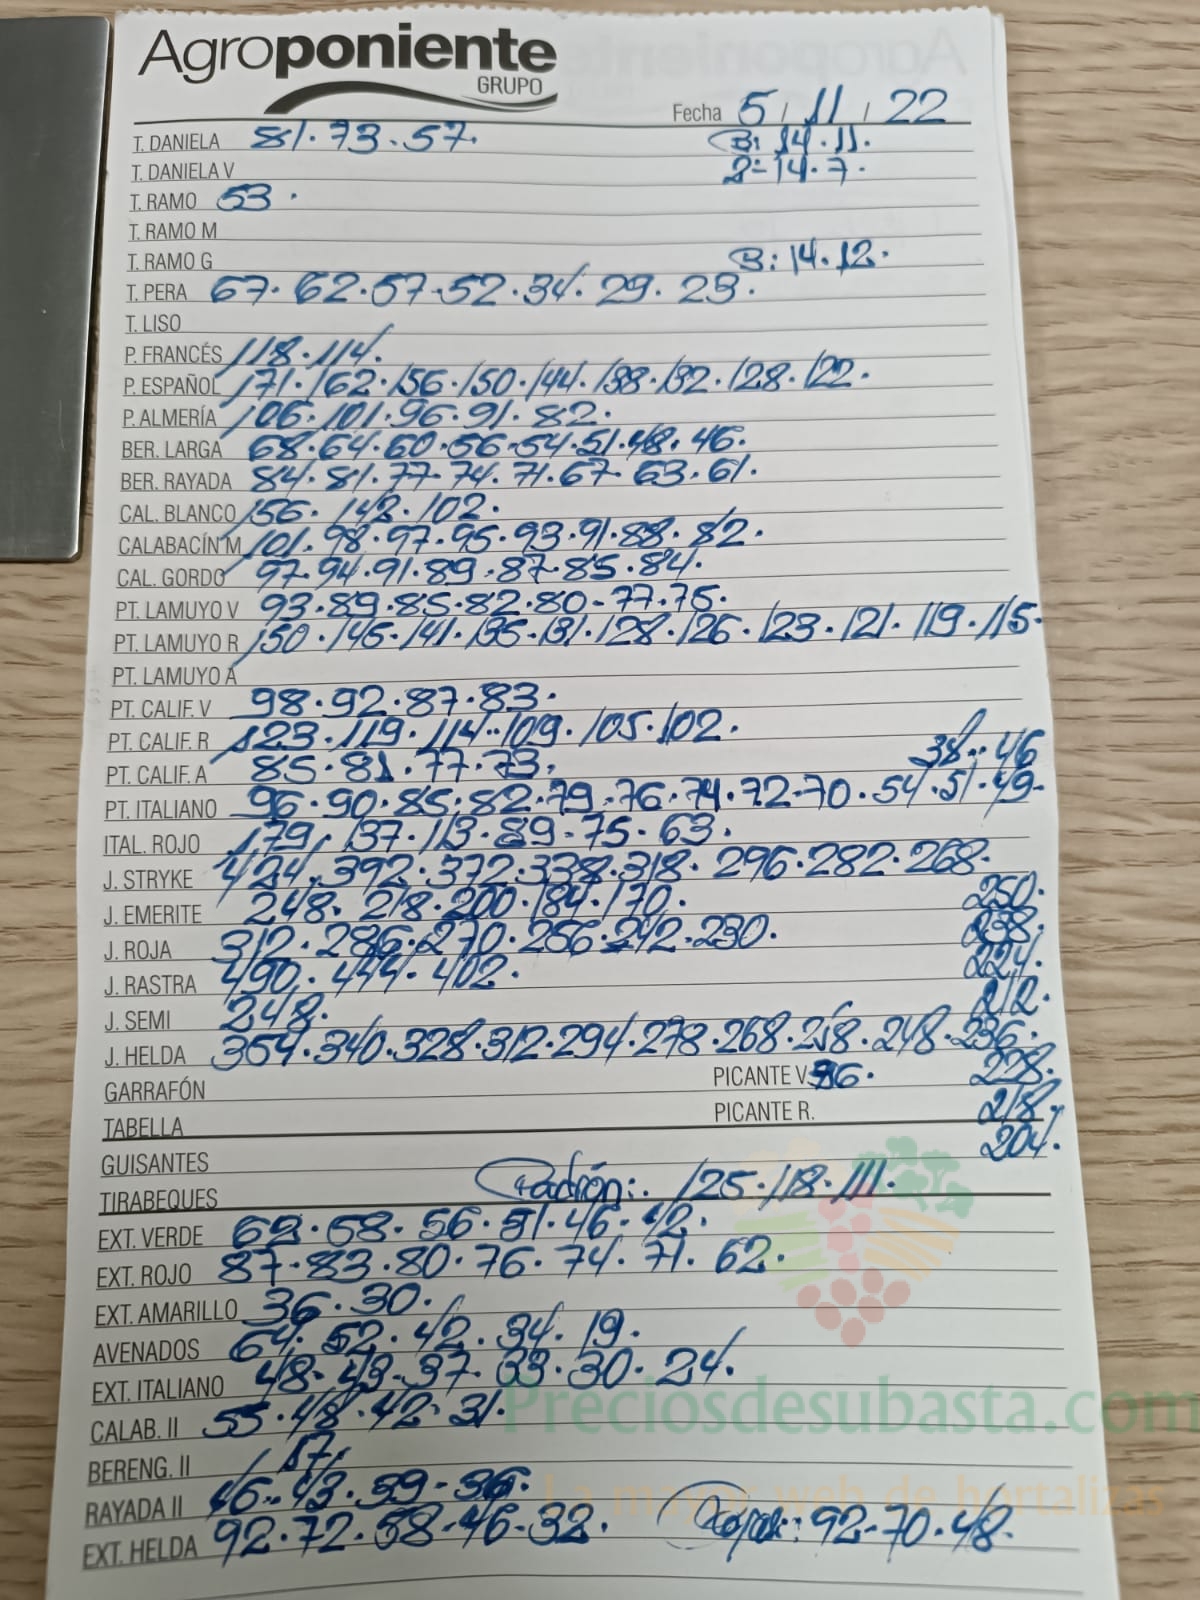 Agroponiente
GRUPO
Fecha 5 / 11 / 22
T. DANIELA 81. 73. 57. B: 14. 11.
T. DANIELA V 2= 14. 7.
T. RAMO 53.
T. RAMO M
T. RAMO G B: 14. 12.
T. PERA 67. 62. 57. 52. 34. 29. 23.
T. LISO
P. FRANCÉS 118. 114.
P. ESPAÑOL 171. 162. 156. 150. 144. 138. 132. 128. 122.
P. ALMERÍA 106. 101. 96. 91. 82.
BER. LARGA 68. 64. 60. 56. 54. 51. 48. 46.
BER. RAYADA 84. 81. 77. 74. 71. 67. 63. 61.
CAL. BLANCO 156. 142. 102.
CALABACÍN M 101. 98. 97. 95. 93. 91. 88. 82.
CAL. GORDO 97. 94. 91. 89. 87. 85. 84.
PT. LAMUYO V 93. 89. 85. 82. 80. 77. 75.
PT. LAMUYO R 150. 145. 141. 135. 131. 128. 126. 123. 121. 119. 115.
PT. LAMUYO A
PT. CALIF. V 98. 92. 87. 83.
PT. CALIF. R 123. 119. 114. 109. 105. 102.
PT. CALIF. A 85. 81. 77. 73. 38. 46
PT. ITALIANO 96. 90. 85. 82. 79. 76. 74. 72. 70. 54. 51. 49.
ITAL. ROJO 179. 137. 113. 89. 75. 63.
J. STRYKE 424. 392. 372. 338. 318. 296. 282. 268.
J. EMERITE 248. 218. 200. 184. 170. 250.
J. ROJA 312. 286. 270. 256. 242. 230. 238.
J. RASTRA 490. 444. 402. 224.
J. SEMI 248. 212.
J. HELDA 354. 340. 328. 312. 294. 278. 268. 258. 248. 236.
GARRAFÓN PICANTE V. 96. 228.
TABELLA PICANTE R. 218.
GUISANTES 204.
TIRABEQUES Padrón: 125. 118. 111.
EXT. VERDE 62. 58. 56. 51. 46. 42.
EXT. ROJO 87. 83. 80. 76. 74. 71. 62.
EXT. AMARILLO 36. 30.
AVENADOS 64. 52. 42. 34. 19.
EXT. ITALIANO 48. 43. 37. 33. 30. 24.
CALAB. II 55. 48. 42. 31.
Preciosdesubasta.com
BERENG. II 17.
RAYADA II 46. 43. 39. 36.
La mayor web de hortalizas
EXT. HELDA 92. 72. 58. 46. 32. 92. 70. 48.